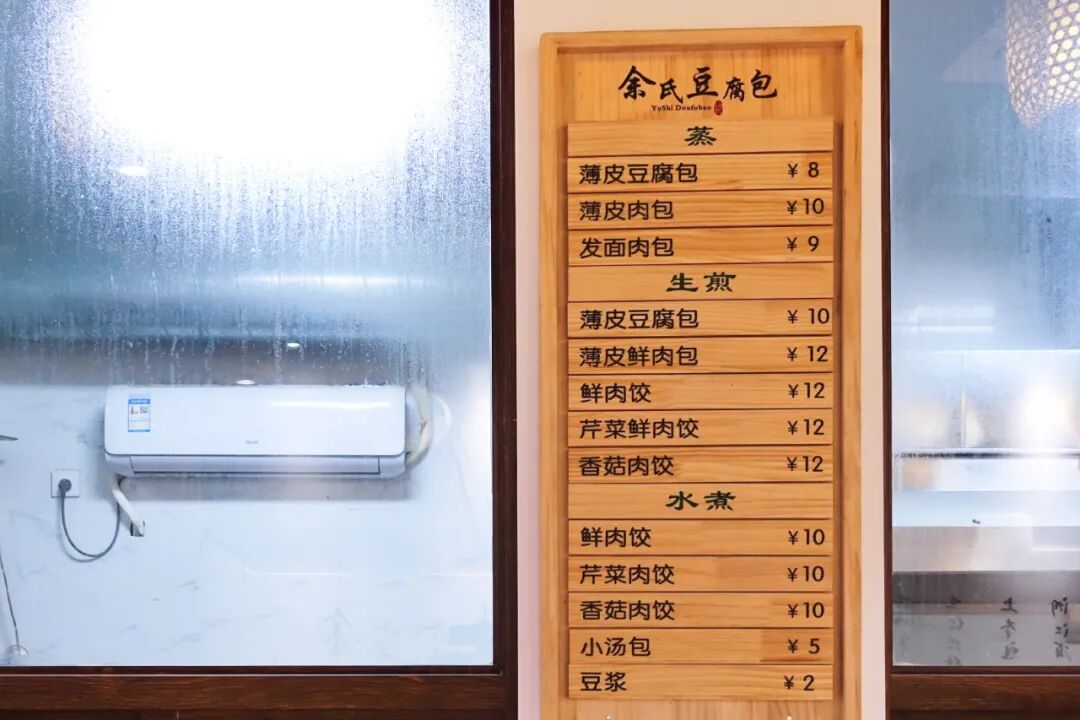 余氏豆腐包
YuShi Doufubao
蒸
薄皮豆腐包 ¥ 8
薄皮肉包 ¥10
发面肉包 ¥ 9
生煎
薄皮豆腐包 ¥ 10
薄皮鲜肉包 ¥ 12
鲜肉饺 ¥12
芹菜鲜肉饺 ¥12
香菇肉饺 ¥12
水煮
鲜肉饺 ¥10
芹菜肉饺 ¥10
香菇肉饺 ¥10
小汤包 ¥ 5
豆浆 ¥ 2